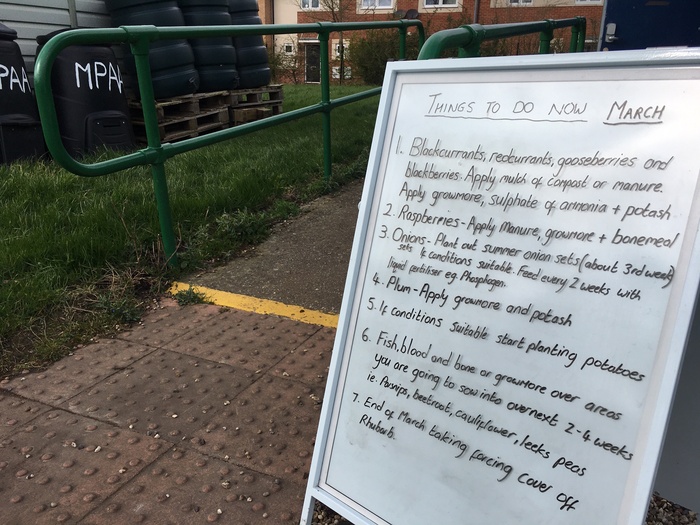 MPAA
MPA
THINGS TO DO NOW MARCH
1. Blackcurrants, redcurrants, gooseberries and
blackberries. Apply mulch of compost or manure.
Apply growmore, sulphate of amonia + potash
2. Raspberries - Apply Manure, growmore + bonemeal
3. Onions - Plant out summer onion sets (about 3rd week)
sets. If conditions suitable. Feed every 2 weeks with
liquid fertiliser eg. Phosphogen.
4. Plum - Apply growmore and potash
5. If conditions suitable start planting potatoes
6. Fish, blood and bone or growmore over areas
you are going to sow into over next 2-4 weeks
ie. Parsnips, beetroot, cauliflower, leeks peas
7. End of March taking forcing cover off
Rhubarb.